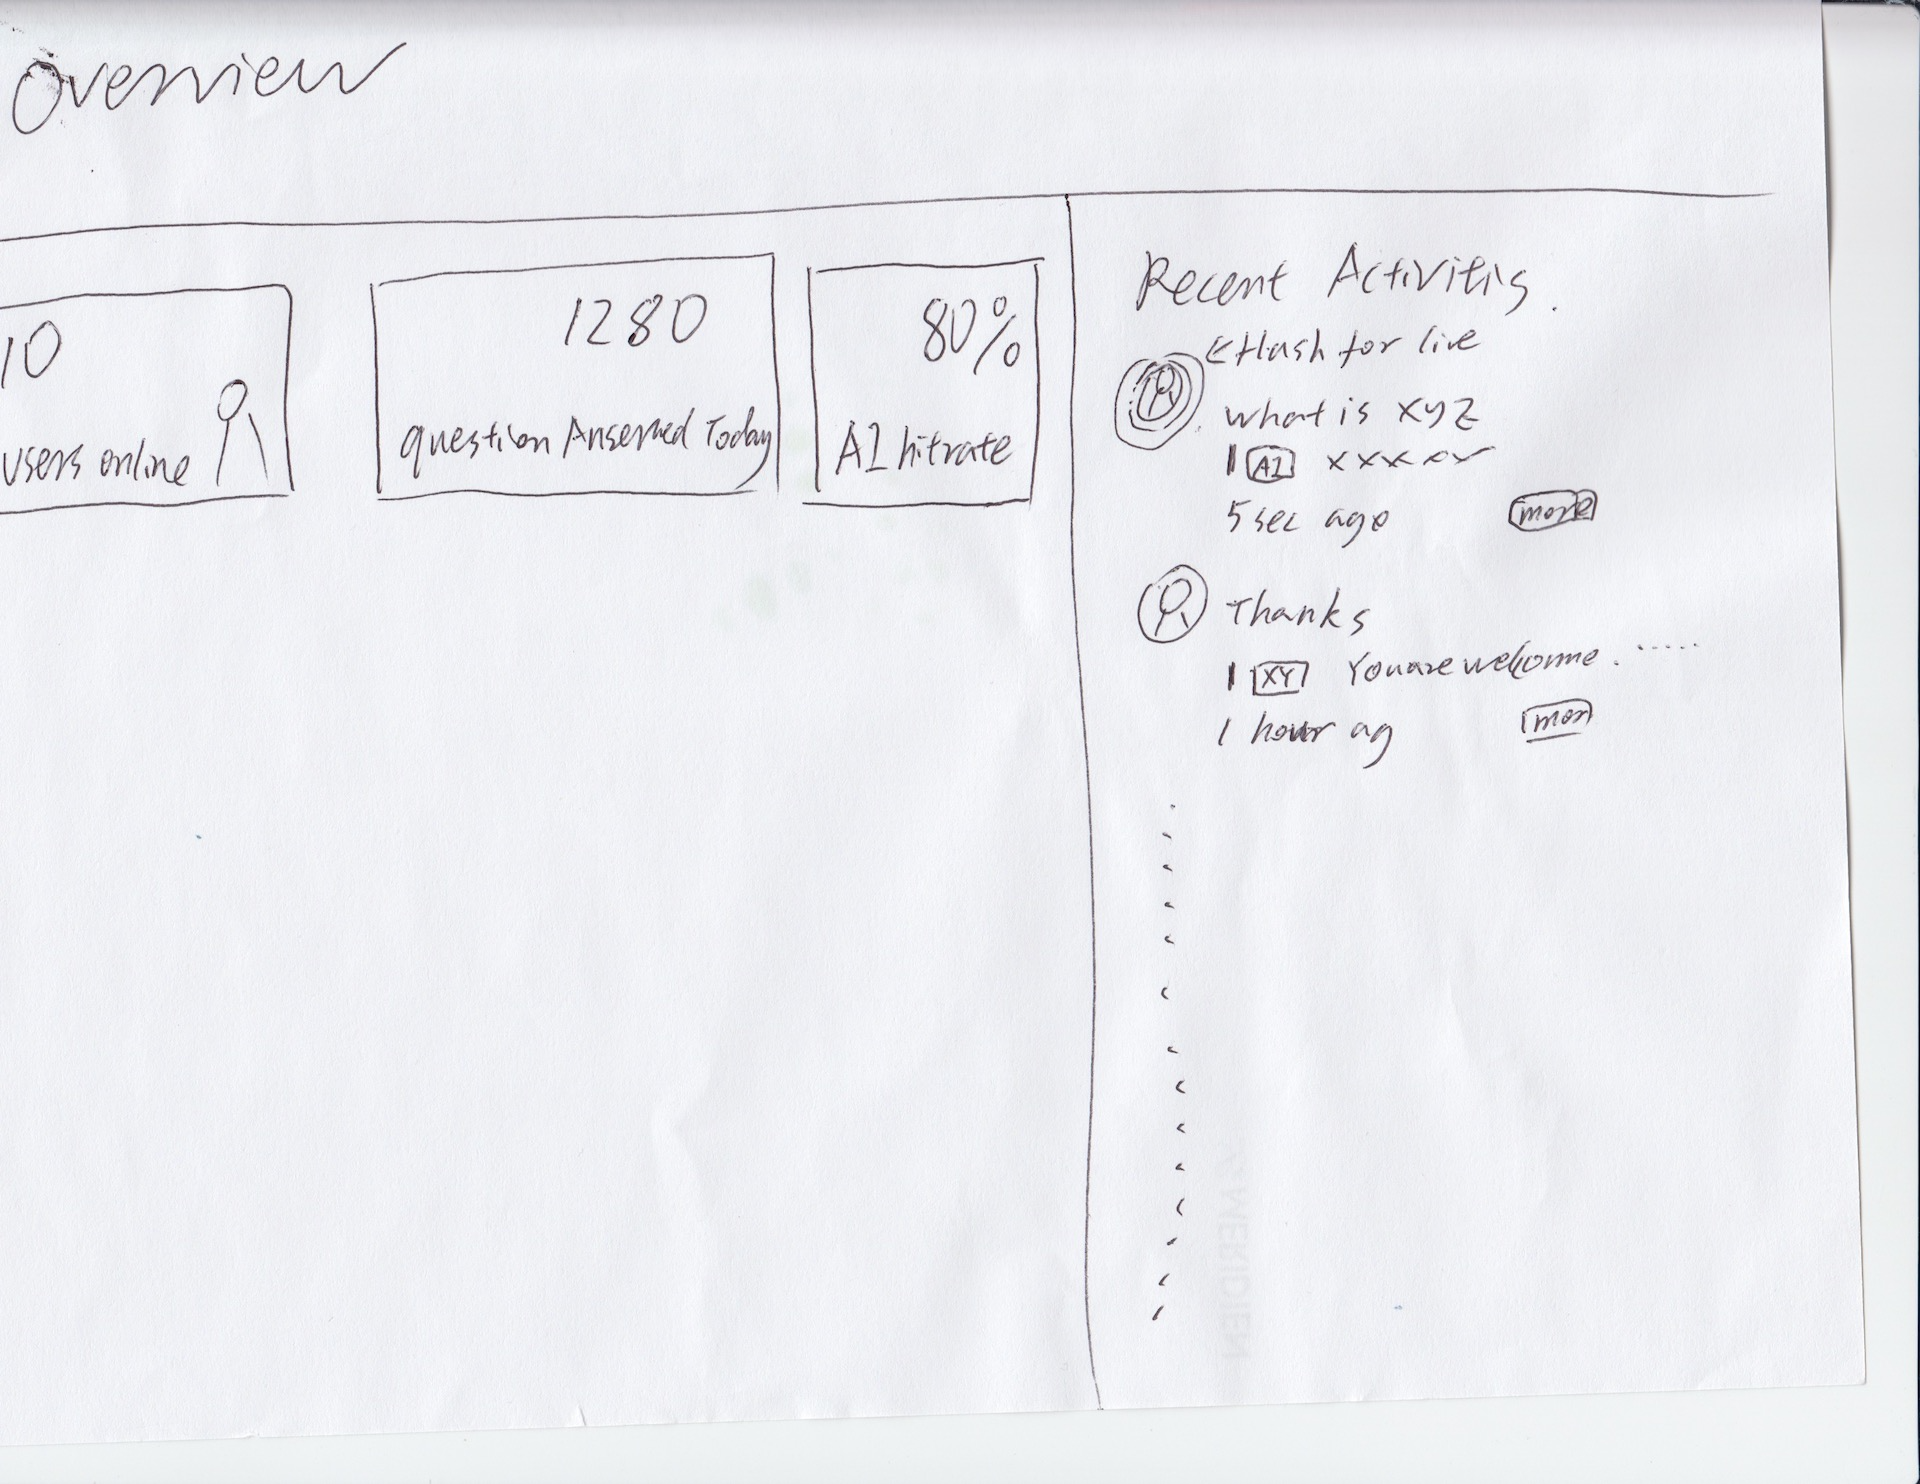 Overview
10
users online
1280
question Answered Today
80%
AI hitrate
Recent Activitis.
← flash for live
what is xyz
AI xxxxx
5 sec ago more
Thanks
XY You are welcome. .....
1 hour ag mor
MERIDIEN